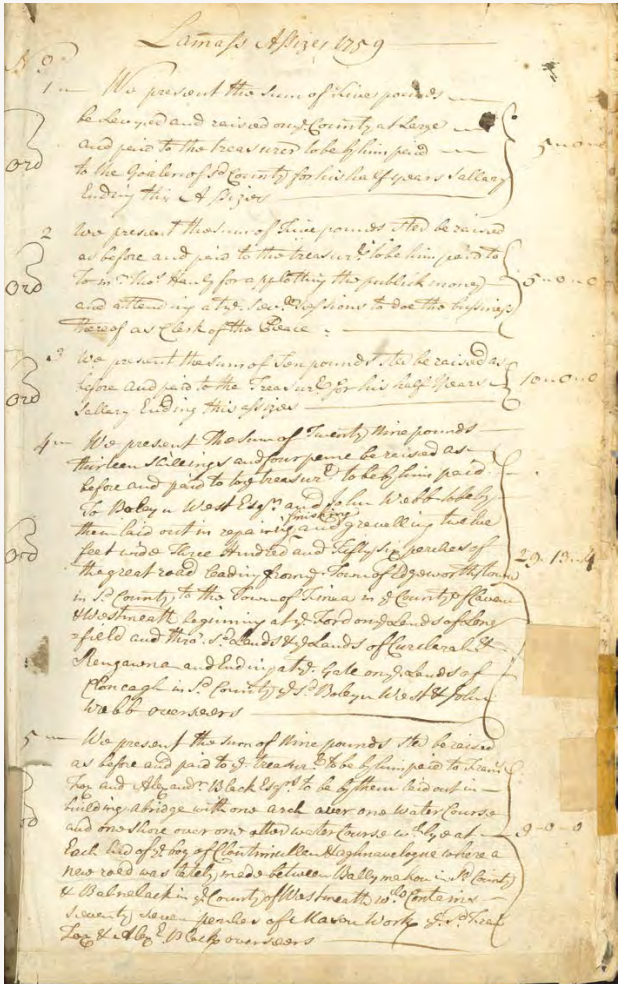 Lamass Assizes 1759
No
1 We present the sum of five pounds
be Levyed and raised on ye. County at Large
and paid to the treasurer to be by him paid
5 " 0 " 0
ord
to the Goaler of sd County for his half years Sallery
Ending this Assizes
2 We present the sum of five pounds ster be raised
as before and paid to the treasurr. to be him paid to
ord
to mr. Thos Hanly for applotting the publick money
5 " 0 " 0
and attending at ye. Sessions to doe the bussiness
thereof as Clerk of the Peace
3 We present the sum of Ten pounds ster be raised as
before and paid to the Treasurr. for his half years
10 " 0 " 0
ord
Sallary Ending this assizes
4 We present the sum of Twenty Nine pounds
thirteen shillings and four pence be raised as
before and paid to the treasurr. to be by him paid
To Boleyn West Esqr. and John Webb to be by
finishing
them laid out in repairing and gravelling twelve
ord
feet wide three Hundred and fifty six perches of
29 " 13 " 4
the great road leading from ye. Town of Edgeworthstown
in sd. County to the Town of in ye County of Cavan
& Westmeath beginning at ye. Ford on ye. Lands of Long
=field and thro. sd. Lands & ye Lands of &
and Ending at ye. Gate on ye. Lands of
Cloncagh in sd. County ye sd. Boleyn West & John
Webb overseers
5 We present the sum of nine pounds ster be raised
as before and paid to ye treasurr. to be by him paid to
Fox and Alexandr. Black Esqrs. to be by them laid out in
building a bridge with one arch over one water Course
and one shore over one other water Course at
9 - 0 - 0
Each End of ye bog of where a
new road was lately made between Ballymahon in sd. County
& in ye County of Westmeath Contains
Seventy seven perches of Mason Work ye. sd.
Fox & Alexr. Black overseers